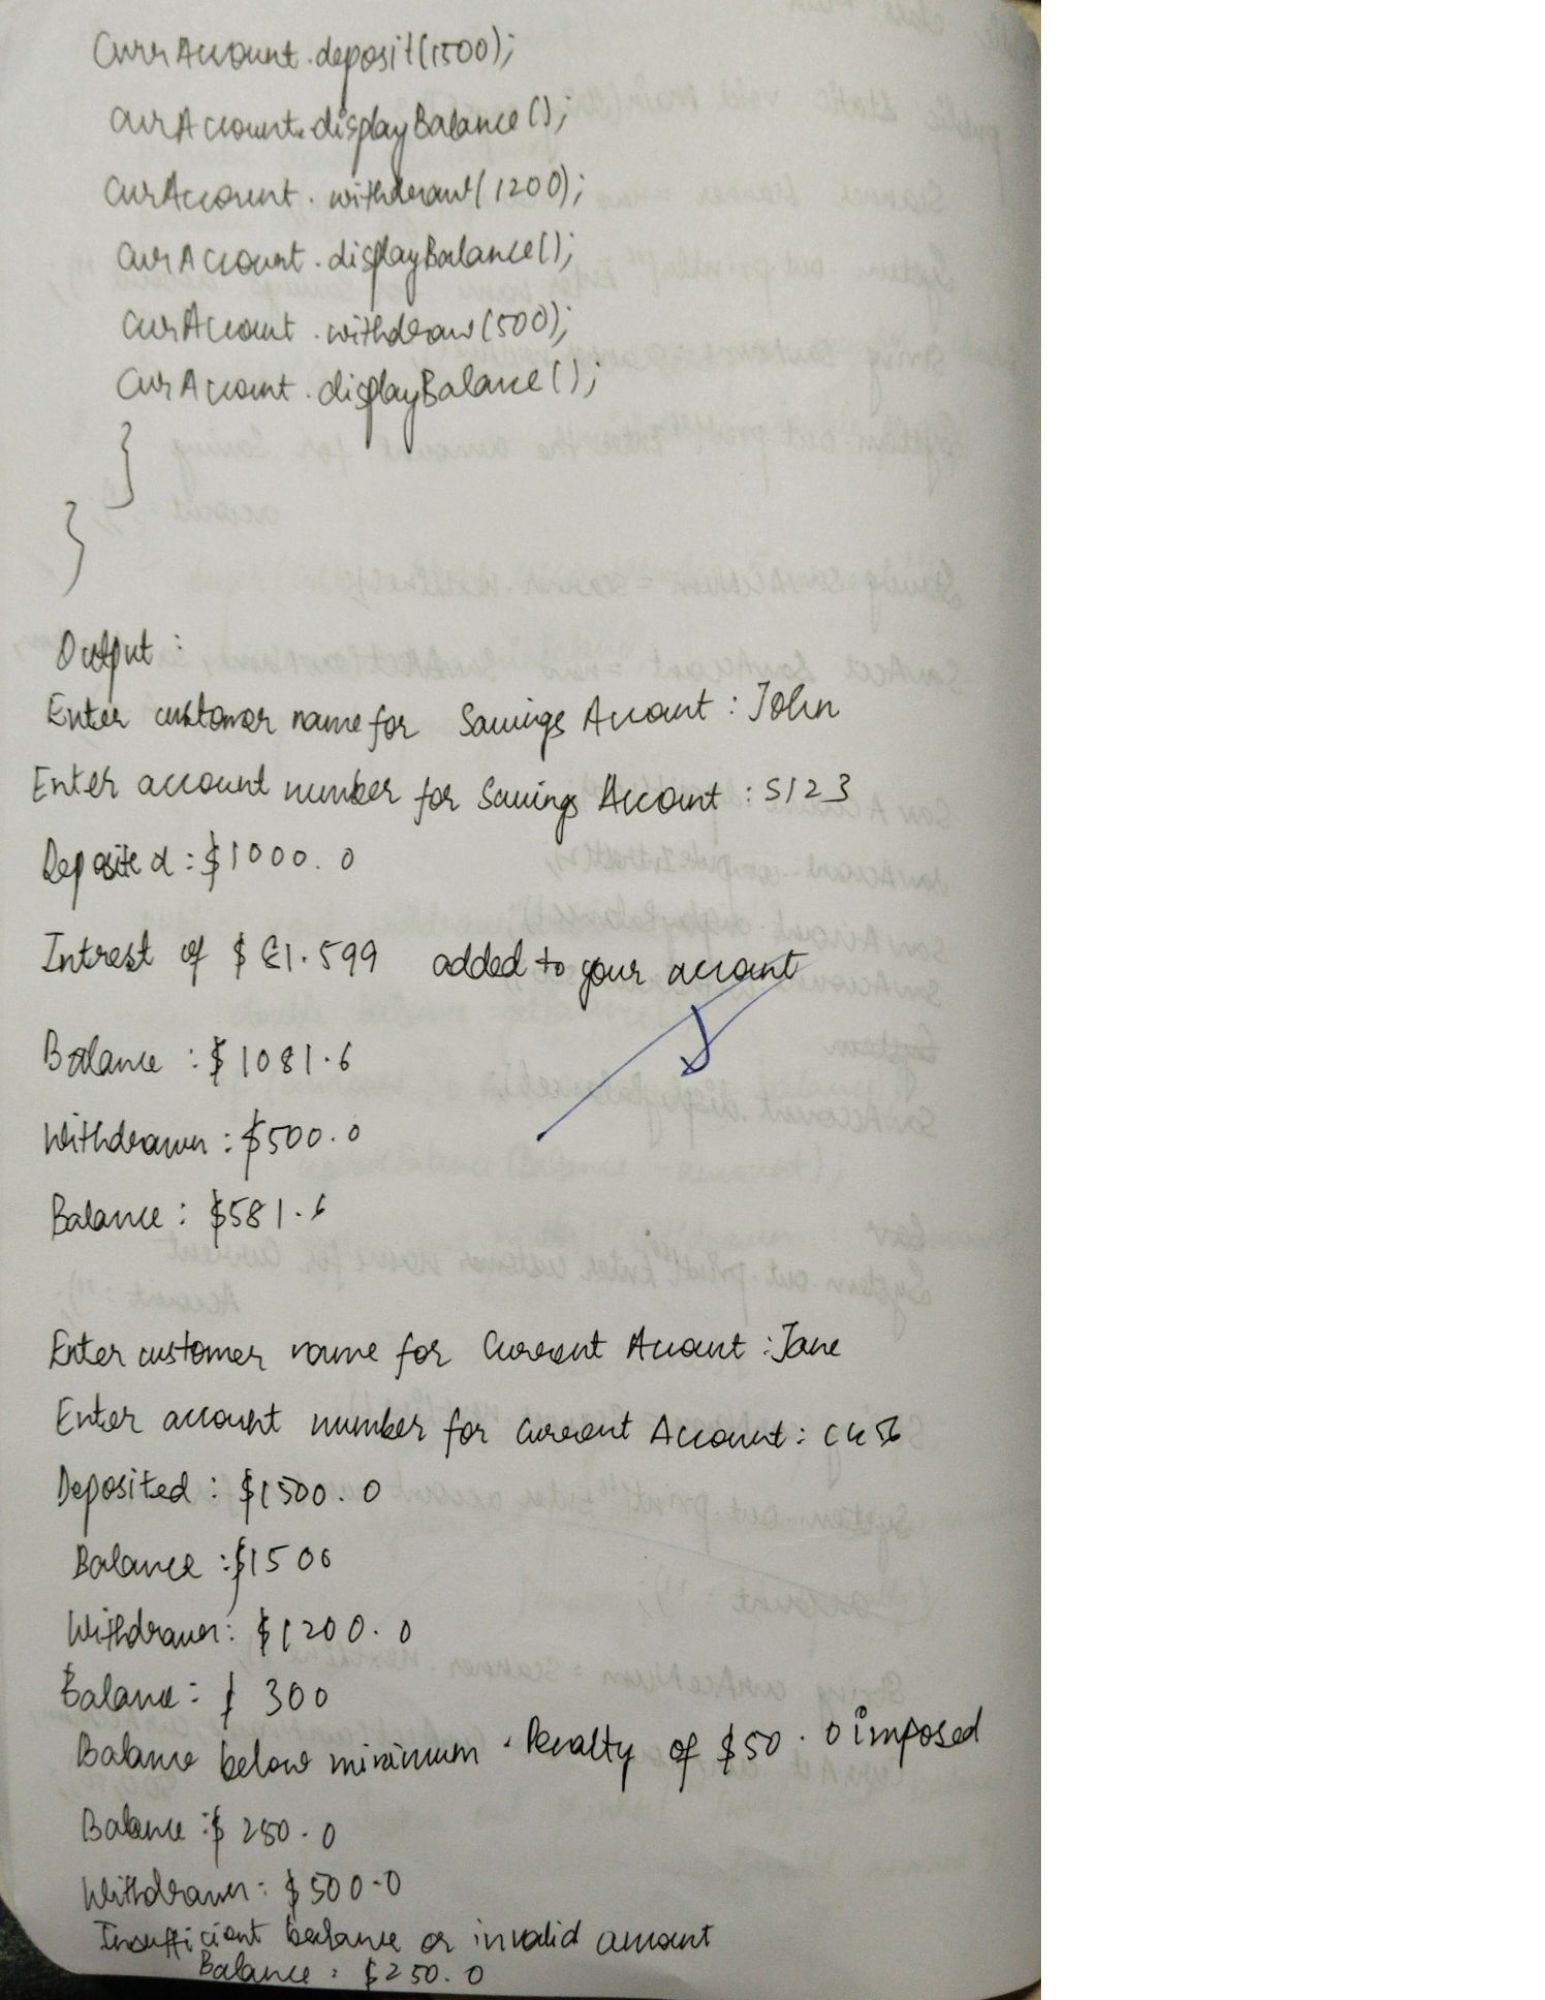 CurrAccount.deposit(1500);
curAccount.displayBalance();
CurAccount.withdraw(1200);
CurAccount.displayBalance();
CurAccount.withdraw(500);
CurAccount.displayBalance();
}
}
Output:
Enter customer name for Savings Account: John
Enter account number for Savings Account: S123
Deposited: $1000.0
Intrest of $ 81.599 added to your account
Balance: $1081.6
Withdrawn: $500.0
Balance: $581.6
Enter customer name for Current Account: Jane
Enter account number for Current Account: C456
Deposited: $1500.0
Balance: $1500
Withdrawn: $1200.0
Balance: $ 300
Balance below minimum. Penalty of $50.0 imposed
Balance: $ 250.0
Withdrawn: $500.0
Insufficient balance or invalid amount
Balance: $250.0